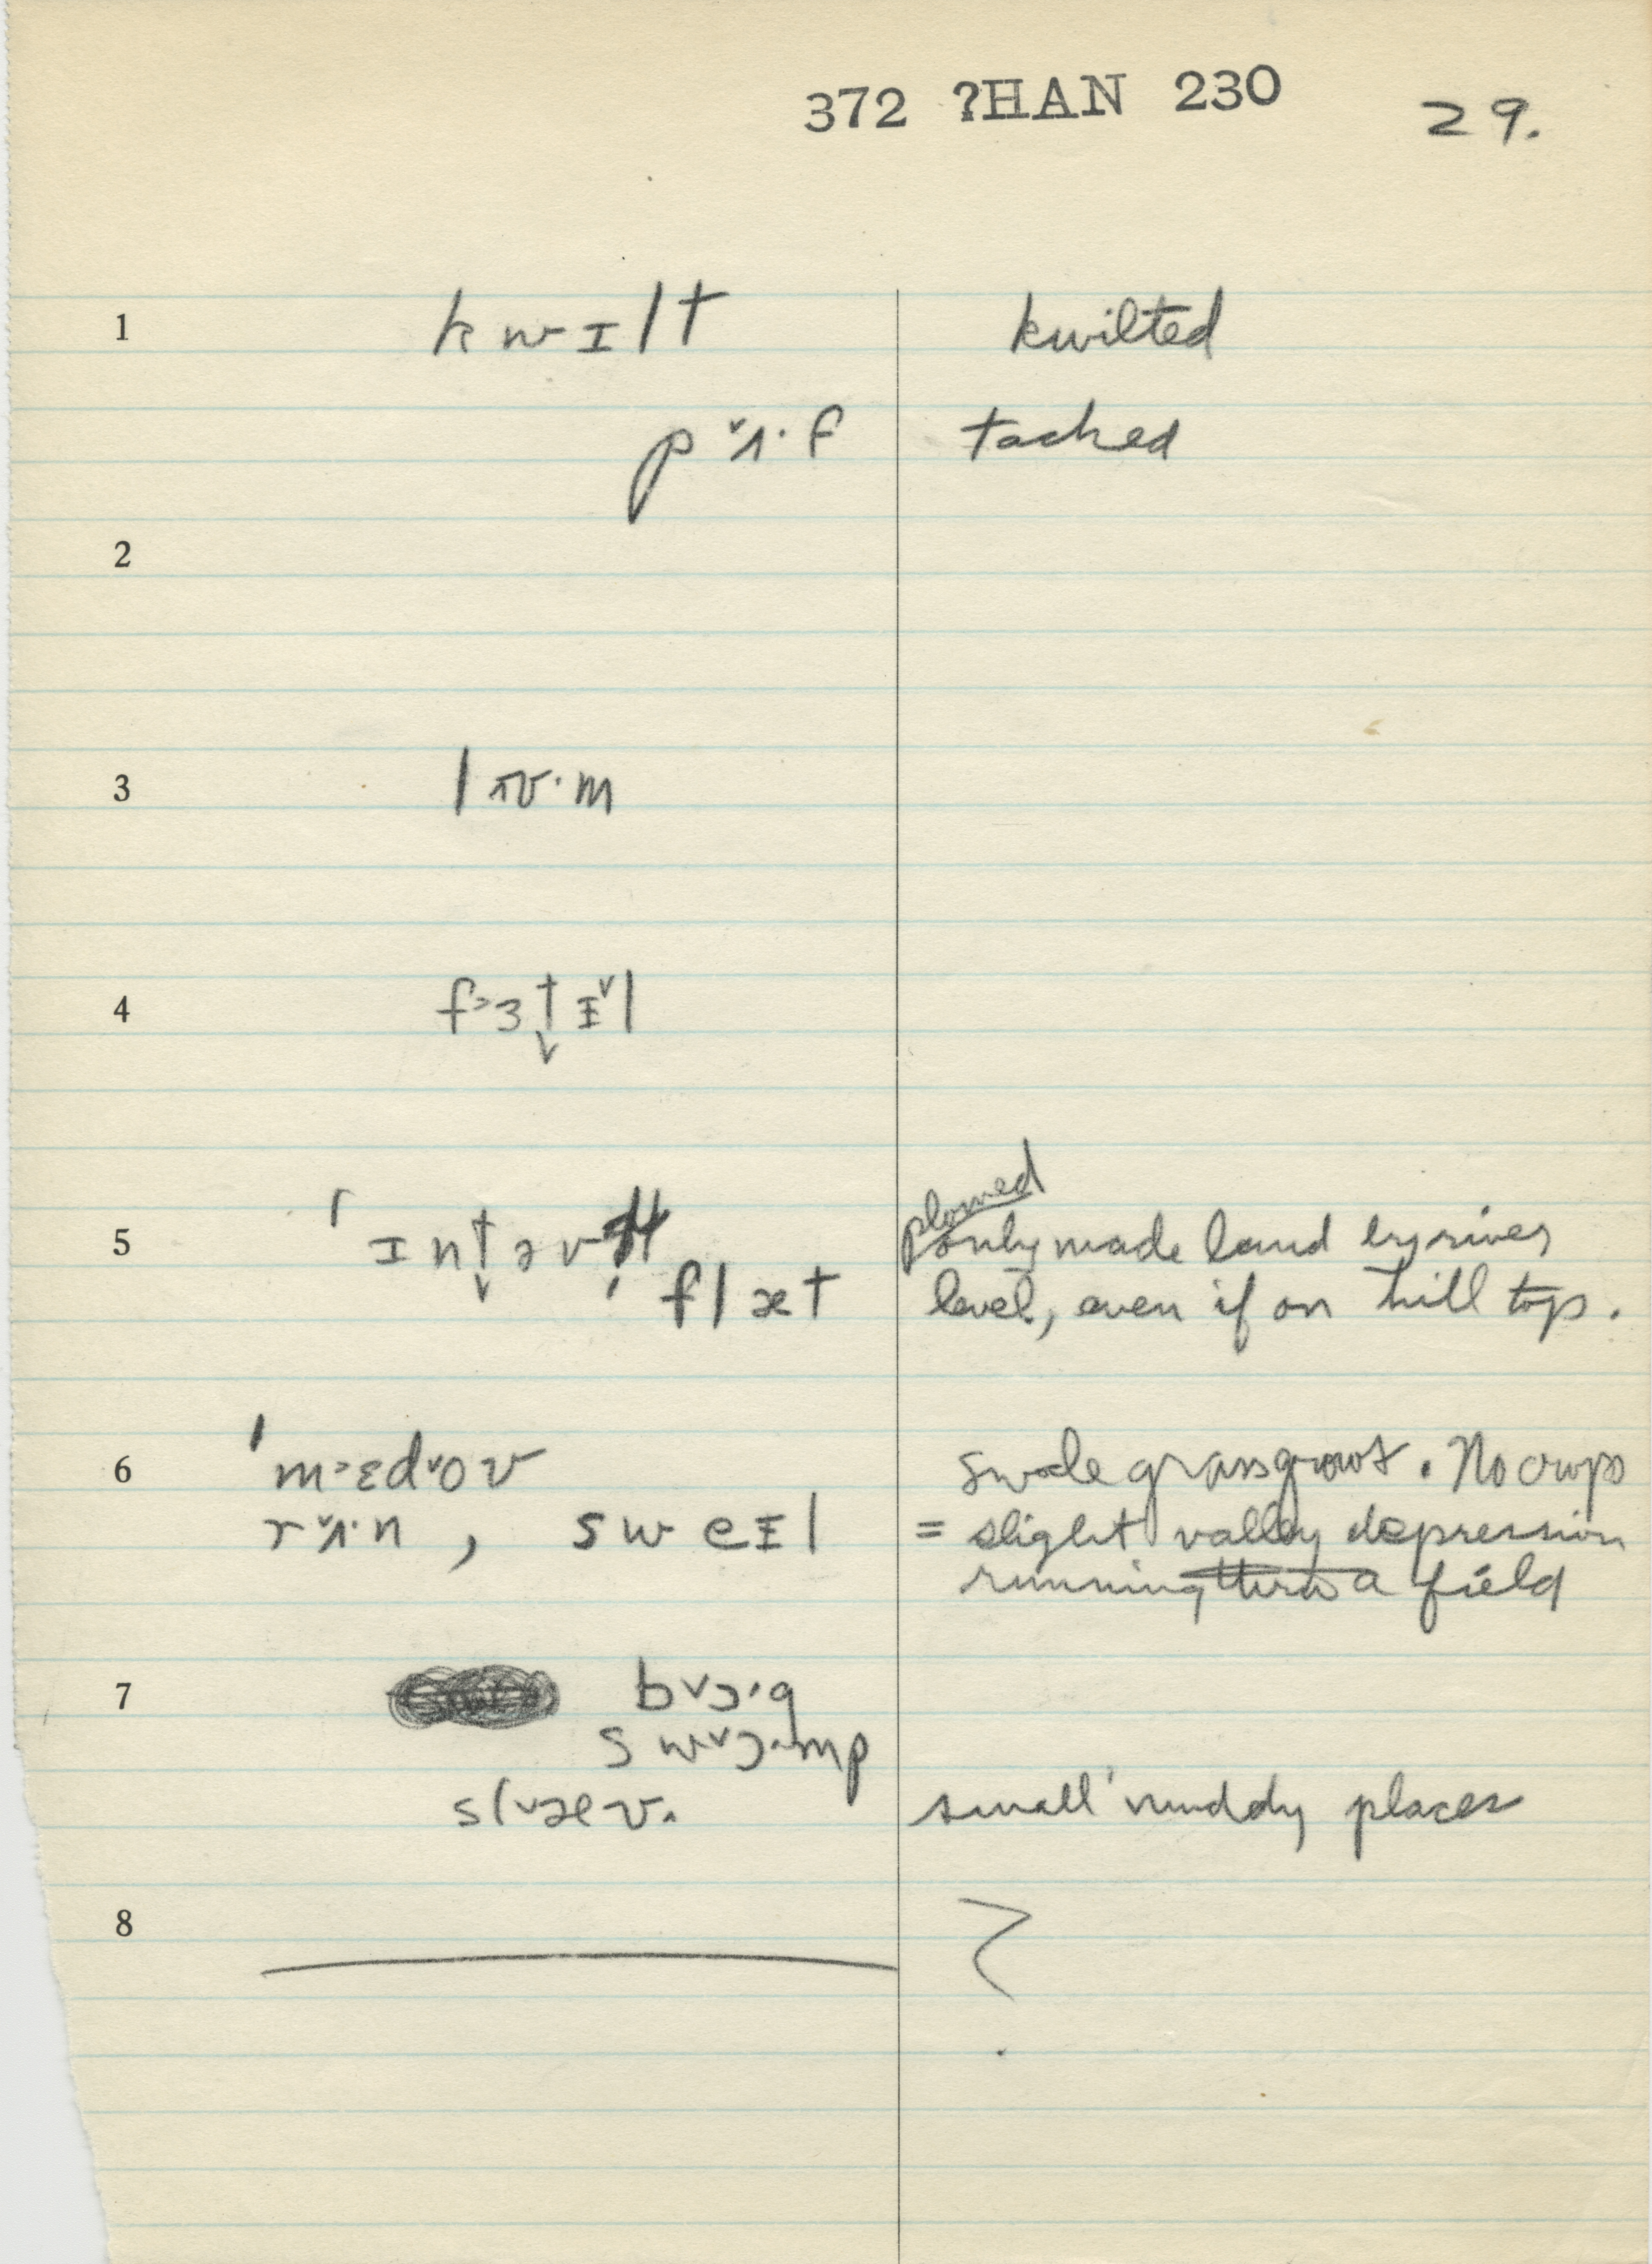 372 ?HAN 230 29.
1 kwɪlt kwilted
pˇʌ·f tacked
2
3 lʊ·m
4 f˃ɜt̬ɪˇl
5 ˈɪnt̬əv plowed
only made land by river
flæt level, even if on hill top.
6 ˈm˃ɛdˇoʊ swale grass grows. No crops
rˇʌ·n, sweɪl = slight valley depression
running thru a field
7 bˇɔ·g
swˇɔ·mp
slˇəʊ. small muddy places
8 ?